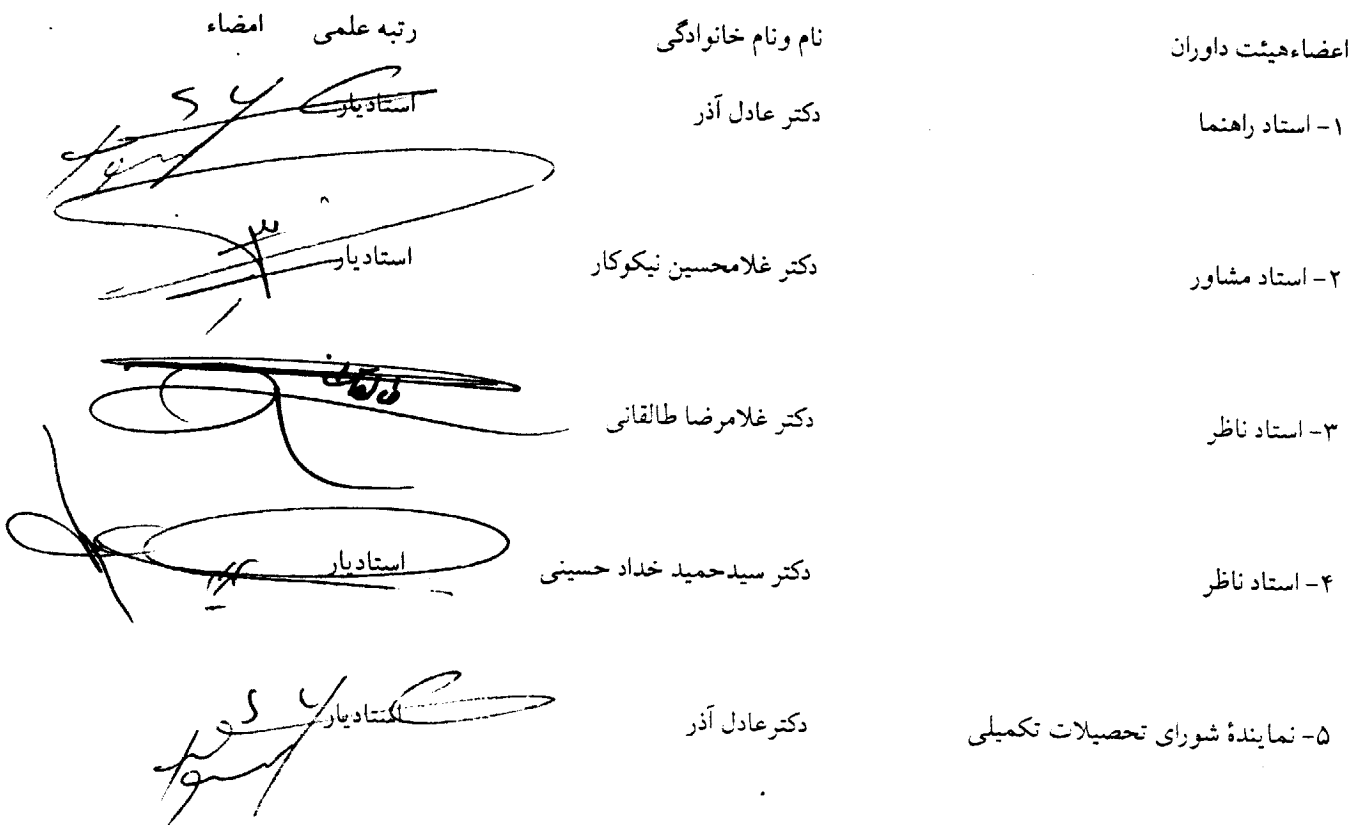 اعضاءهیئت داوران نام ونام خانوادگی رتبه علمی امضاء
۱- استاد راهنما دکتر عادل آذر استادیار
۲- استاد مشاور دکتر غلامحسین نیکوکار استادیار
۳- استاد ناظر دکتر غلامرضا طالقانی
۴- استاد ناظر دکتر سیدحمید خداد حسینی استادیار
۵- نمایندهٔ شورای تحصیلات تکمیلی دکترعادل آذر استادیار